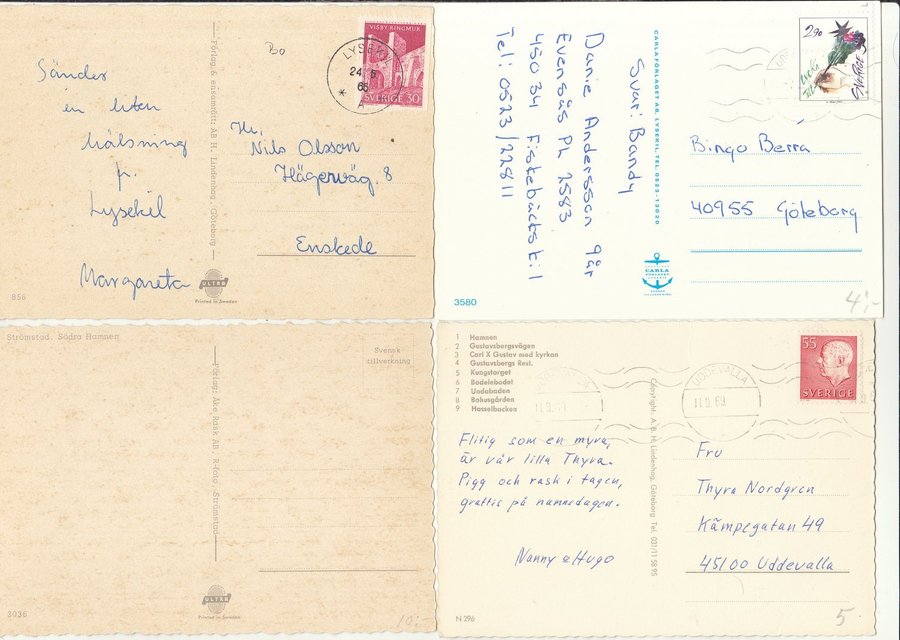 Bo
VISBY RINGMUR
SVERIGE 30
LYSEKIL
24 5
66
* A
Sänder
en liten
hälsning
fr.
Lysekil
Margareta
Förlag & ensamrätt: AB H. Lindenhag, Göteborg
Hr.
Nils Olsson
Hägerväg. 8
Enskede
ULTRA
Printed in Sweden
856
Svar: Bandy
Danie Andersson 9år
Evensås PL 2583
450 34 Fiskebäckskil
Tel: 0523/22811
CARLAFÖRLAGET AB, LYSEKIL, TEL. 0523-13020
2,90
SVERIGE
Bingo Berra
40955 Göteborg
CARLA
FÖRLAGET
3580
4:-
Strömstad. Södra Hamnen
Svensk
tillverkning
Förlag: Åke Rask AB, R-foto, Strömstad
ULTRA
Printed in Sweden
3036
10:-
1 Hamnen
2 Gustavsbergsvägen
3 Carl X Gustav med kyrkan
4 Gustavsbergs Rest.
5 Kungstorget
6 Badelebadet
7 Undabaden
8 Bohusgården
9 Hasselbacken
UDDEVALLA
11.9.69
55
SVERIGE
Flitig som en myra,
är vår lilla Thyra.
Pigg och rask i tagen,
grattis på namnsdagen.
Nanny o Hugo
Copyright: A. B. H. Lindenhag, Göteborg. Tel. 031/11 58 95
Fru
Thyra Nordgren
Kämpegatan 49
45100 Uddevalla
N 296
5:-